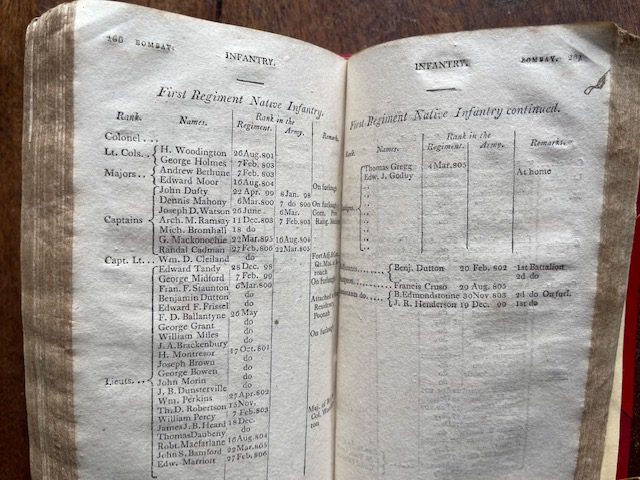 160 BOMBAY.
INFANTRY.
First Regiment Native Infantry.
Rank. Names. Rank in the Regiment. Army. Remark
Colonel....
Lt. Cols.. H. Woodington 26 Aug. 801
George Holmes 7 Feb. 803
Majors.. Andrew Bethune 7 Feb. 803
Edward Moor 16 Aug. 804 On furlough
John Dufty 22 Apr. 99 8 Jan. 98
Dennis Mahony 6 Mar. 800 7 do 800 On furlough
Joseph D. Watson 26 June. 6 Mar. Com.
Captains Arch. M. Ramsay 11 Dec. 803 7 Feb. 803
Mich. Bromhall 18 do
G. Mackonochie 22 Mar. 805 16 Aug. 804
Randal Cadman 27 Feb. 806 22 Mar. 805
Capt. Lt... Wm. D. Cleiland do Fort Adj.
Edward Tandy 28 Dec. 98
George Midford 7 Feb. 99 roach
Fran. F. Staunton 6 Mar. 800 On furlough
Benjamin Dutton do Attached
Edward F. Frissel do Residen
F. D. Ballantyne 26 May Poonah
George Grant do
William Miles do On furlough
J. A. Brackenbury do
H. Montresor 17 Oct. 801
Joseph Brown do
George Bowen do
Lieuts... John Morin do
J. B. Dunsterville do
Wm. Perkins 27 Apr. 802
Th. D. Robertson 15 Nov.
William Percy 7 Feb. 803
James J. B. Heard 18 Dec.
Thomas Daubeny do
Robt. Macfarlane 16 Aug. 804
John S. Bamford 22 Mar. 805
Edw. Marriott 27 Feb. 806
INFANTRY.
BOMBAY.
First Regiment Native Infantry continued.
Rank. Names. Rank in the Regiment. Army. Remarks.
Thomas Gregg 4 Mar. 805
Edw. J. Godfuy At home
Benj. Dutton 20 Feb. 802 1st Battalion
Francis Cruso 29 Aug. 805 2d do
B. Edmondstonne 30 Nov. 803 2d do On furl.
J. R. Henderson 19 Dec. 99 1st do